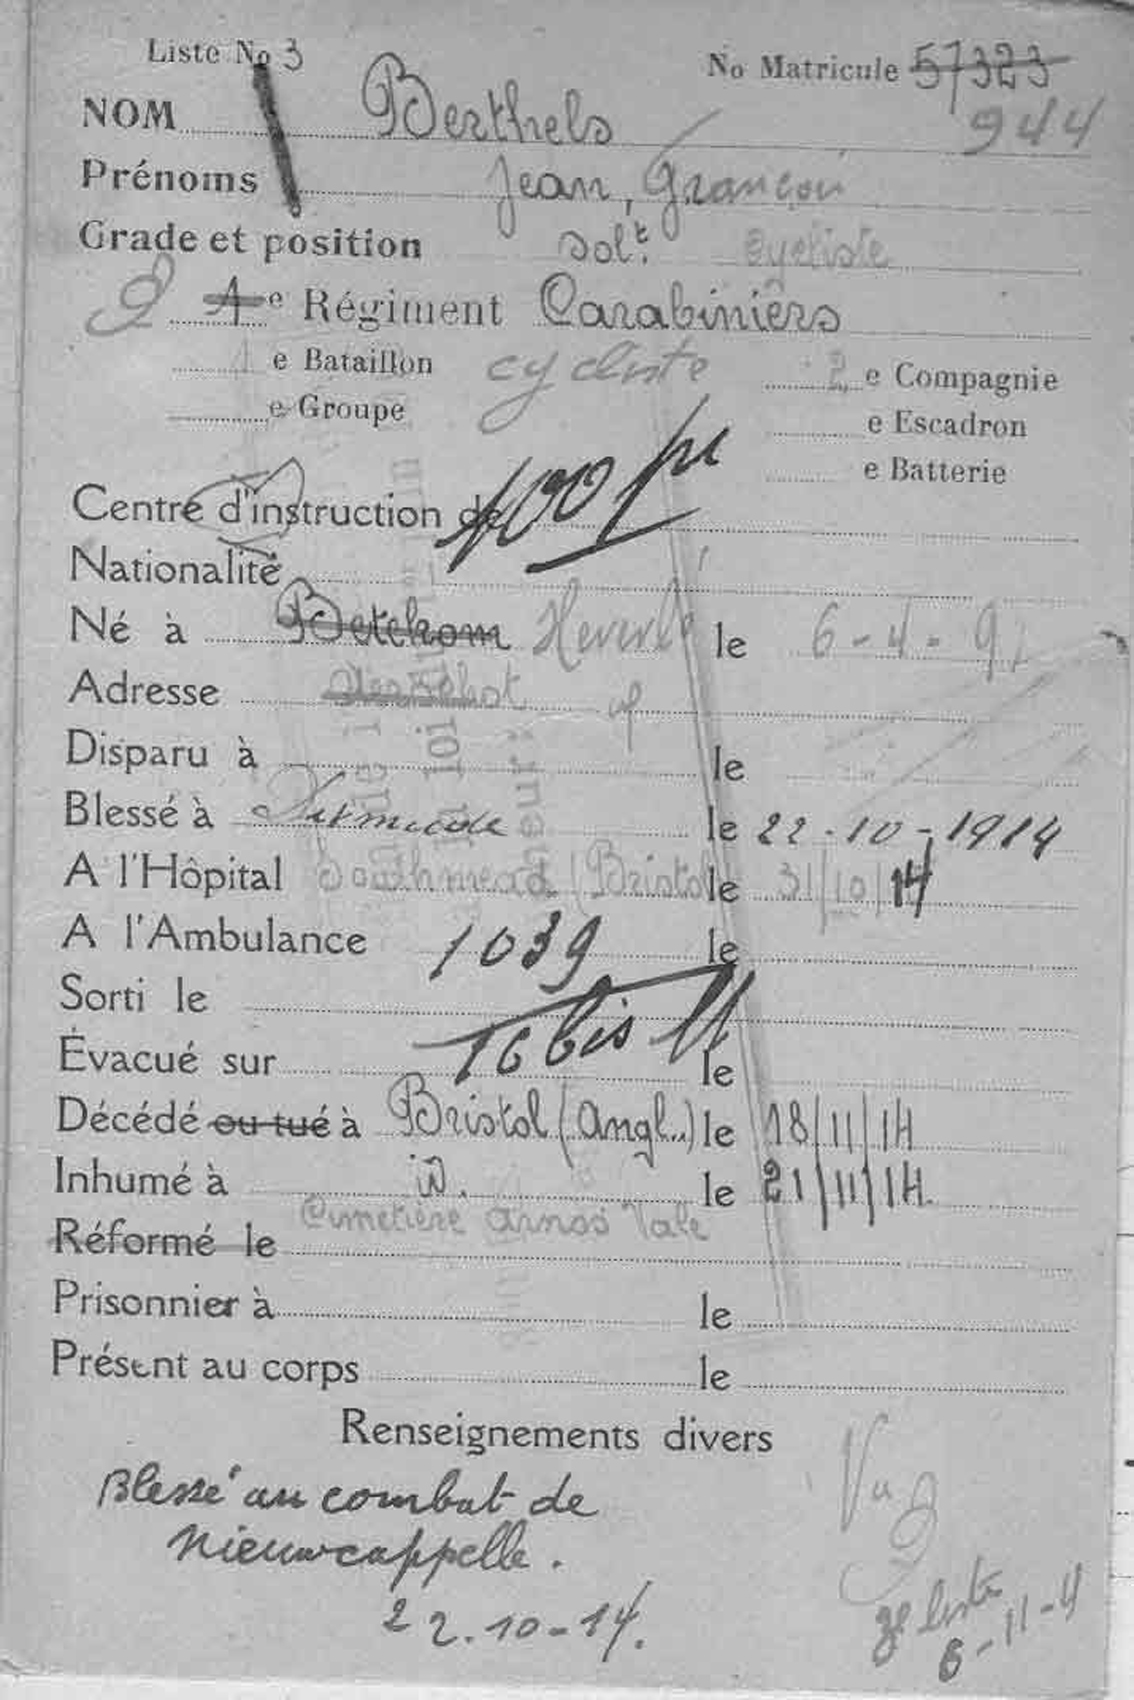 Liste No 3
No Matricule 57323
944
NOM Berthels
Prénoms Jean, François
Grade et position solt. cycliste
2 1e Régiment Carabiniers
1 e Bataillon cycliste 2 e Compagnie
e Groupe
e Escadron
e Batterie
Centre d'instruction de
400
Nationalité
Né à Betekom Heverlé le 6-4-91
Adresse Aerschot
Disparu à le
Blessé à Dixmude le 22-10-1914
A l'Hôpital Southmead (Bristol le 31/10/14
A l'Ambulance 1039 le
Sorti le
16 bis
Évacué sur le
Décédé ou tué à Bristol (Angl..) le 18/11/14
Inhumé à id. le 21/11/14.
Cimetière Arnos Vale
Réformé le
Prisonnier à le
Présent au corps le
Renseignements divers
Blessé au combat de
Nieuwcappelle.
22.10-14.
Vu
liste
6-11-4